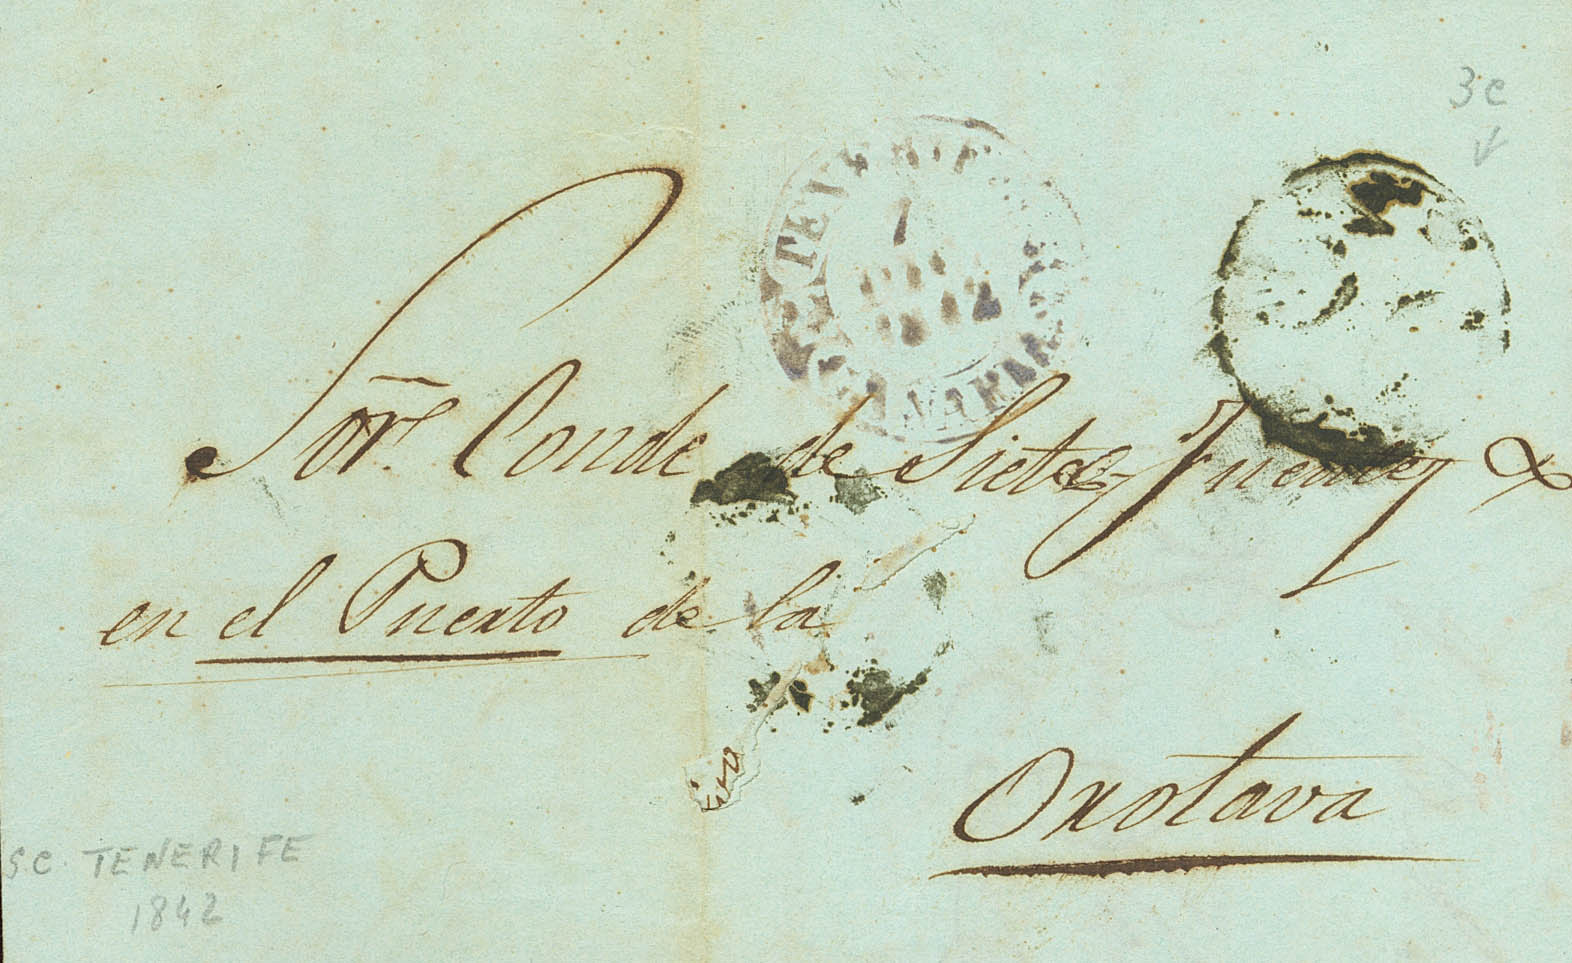 3 C
TENERIFE
1
1842
CANARIAS
Sõr. Conde de Siete Fuentes &
en el Puerto de la
Orotava
S.C. TENERIFE
1842